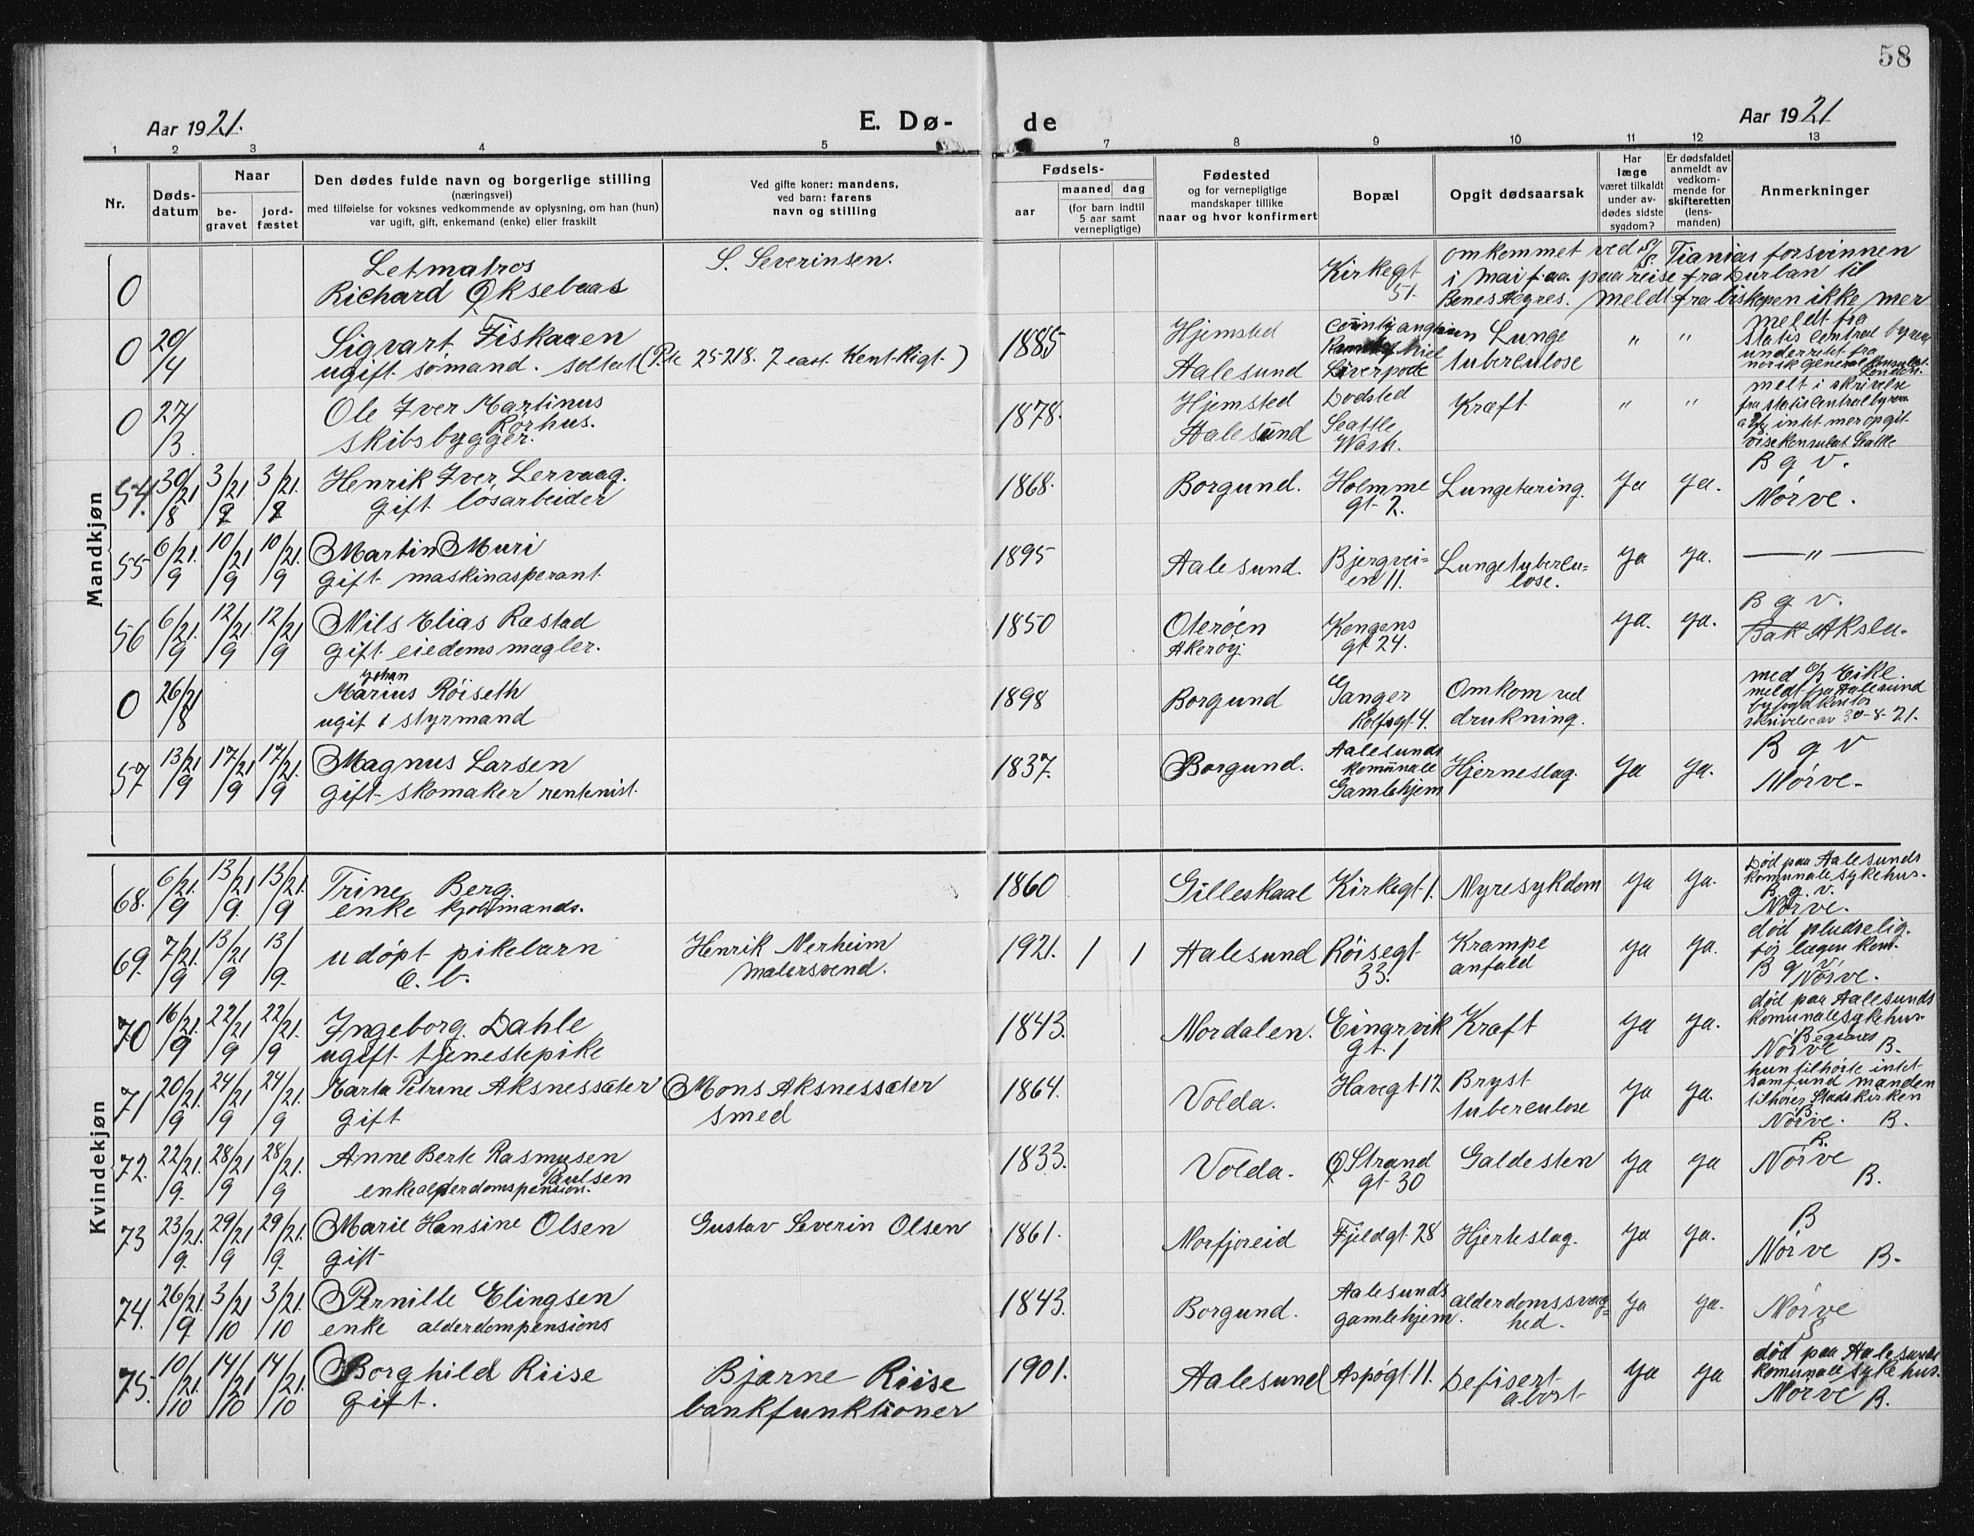 58
Aar 1921.
E. Dø-
de
Aar 1921
1 2 3 4 5 7 8 9 10 11 12 13
Nr.
Døds-
datum
Naar
be-
gravet
jord-
fæstet
Den dødes fulde navn og borgerlige stilling
(næringsvei)
med tilføielse for voksnes vedkommende av oplysning, om han (hun)
var ugift, gift, enkemand (enke) eller fraskilt
Ved gifte koner: mandens,
ved barn: farens
navn og stilling
Fødsels-
aar
maaned dag
(for barn indtil
5 aar samt
vernepligtige)
Fødested
og for vernepligtige
mandskaper tillike
naar og hvor konfirmert
Bopæl
Opgit dødsaarsak
Har
læge
været tilkaldt
under av-
dødes sidste
sygdom?
Er dødsfaldet
anmeldt av
vedkom-
mende for
skifteretten
(lens-
manden)
Anmerkninger
Mandkjøn
0
Letmatros
Richard Øksebaas
S. Severinsen.
Kirkegt
51.
omkommet ved S/S. Tianias forsvinnen
i mai f. aa. paa reise fra Durban til
Benes Aegres. Meldt fra biskopen ikke mer
0 20/4
Sigvart Fiskaaen
ugift sømand. soltert (Pte 25218. 7 east Kent Rigt.)
1885
Hjemsted
Aalesund
Liverpode
Lunge
tuberculose
" "
meldt fra
statis central byraa
underrettet fra
norsk general konsulat
London.
0 27/3
Ole Iver Martinus
Rørhus.
skibsbygger.
1878.
Hjemsted
Aalesund
Dødsted
Seattle
Wash.
Kræft
" "
melt i skrivelse
fra statis central byraa
intet mer opgit
visekonsulat Seattle
54. 30/21/8 3/21/9 3/21/9
Henrik Iver Lervaag.
gift løsarbeider
1868.
Borgund.
Holmme
gt 2.
Lungetæring.
Ja Ja.
B g v.
Nørve.
55 6/21/9 10/21/9 10/21/9
Martin Muri
gift maskinasperant
1895
Aalesund.
Bjergvei-
en 11.
Lungetuberlu-
lose.
Ja Ja.
— " —
56 6/21/9 12/21/9 12/21/9
Nils Elias Rastad
gift eiedomsmægler.
1850
Oterøen
Akerøy.
Kongens
gt 24.
Ja. Ja.
B g v.
Bak Aksla.
0 26/21/8
Johan
Marius Røiseth
ugift styrmand
1898
Borgund
Ganger
Rolfsgt 4.
Omkom ved
drukning.
med S/S Eikle.
meldt fra Aalesund
byfogdkontor
skrivelse av 30-8-21.
57 13/21/9 17/21/9 17/21/9
Magnus Larsen
gift skomaker rentenist.
1837.
Borgund.
Aalesunds
komunale
Gamlehjem
Hjerneslag.
Ja Ja.
B g v
Nørve.
Kvindekjøn
68. 6/21/9 13/21/9 13/21/9
Trine Berg.
enke kjøbmands.
1860
Gilleskaal
Kirkegt 1.
Nyresykdom
Ja Ja.
Død paa Aalesunds
komunale sykehus.
B. g. v.
Nørve.
69. 7/21/9 13/21/9 13/9
udøpt pikebarn
e. b.
Henrik Nerheim
malersvend.
1921. 1 1
Aalesund
Røisegt
33.
Krampe
anfald
Ja Ja.
død pludselig.
før lægen kom.
B g v,
Nørve.
70 16/21/9 22/21/9 22/21/9
Ingeborg Dahle
ugift tjenestepike
1843.
Nordalen.
Eingrvik
gt. 1
Kræft
Ja Ja.
død paa Aalesunds
komunale sykehus
Begraves
Nørve B.
71 20/21/9 24/21/9 24/21/9
Marta Petrine Aksnessæter
gift
Mons Aksnessæter
smed
1864.
Volda.
Havegt 12
Bryst
tuberculose
Ja Ja.
hun tilhørte intet
samfund manden
tilhører Stadskirken
B.
Nørve. B.
72. 22/21/9 28/21/9 28/21/9
Anne Berte Rasmusen
Paulsen
enke alderdomspension.
1833.
Volda.
Ø Strand
gt 30
Galdesten
Ja Ja
B.
Nørve
B.
73 23/21/9 29/21/9 29/21/9
Marie Hansine Olsen
gift
Gustav Severin Olsen
1861.
Norfjoreid
Fjeldgt 28
Hjerteslag.
Ja Ja.
B
Nørve B.
74. 26/21/9 3/21/10 3/21/10
Pernille Elingsen
enke alderdompensions
1843.
Borgund.
Aalesunds
gamlehjem.
alderdomssvag-
hed.
Ja Ja.
Nørve
B
75. 10/21/10 14/21/10 14/21/10
Borghild Riise
gift.
Bjarne Riise
bankfunktioner
1901.
Aalesund
Aspøgt 11.
Defisert
abort
Ja Ja
død paa Aalesunds
komunale sykehus.
Nørve B.